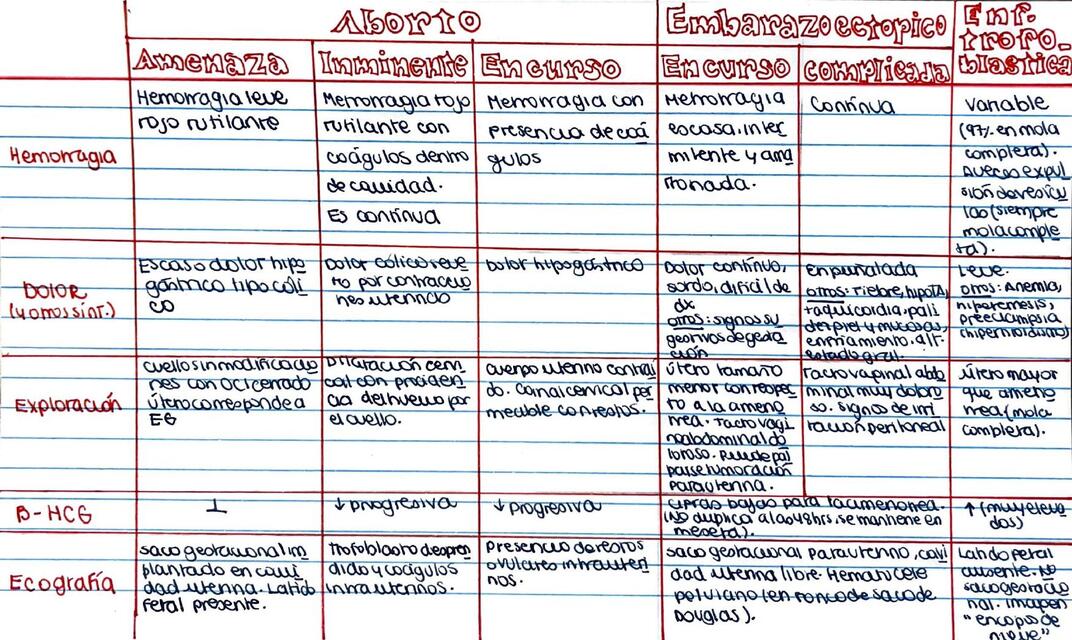 Aborto
Embarazo ectopico
Enf.
trofo_
blastica
Amenaza
Inminente
En curso
En curso
complicada
Hemorragia
Hemorragia leve
rojo rutilante
Hemorragia rojo
rutilante con
coágulos dentro
de cavidad.
Es contínua
Hemorragia con
presencia de coá
gulos
Hemorragia
escasa, inter
mitente y ama
rronada.
Contínua
variable
(97% en mola
completa).
A veces expul
sión de vesícu
las (siempre
mola comple
ta).
Dolor
(y otros sínt.)
Escaso dolor hipo
gástrico tipo cóli
co
Dolor cólico seve
ro por contraccio
nes uterino
Dolor hipogástrico
Dolor contínuo,
sordo, difícil de
dx
otros: signos su
gestivos de gesta
ción
en puñalada
otros: fiebre, hipoTA,
taquicardia, pali
dez piel y mucosas,
enfriamiento, alt.
estado gral.
Leve.
otros: Anemia,
hiperemesis,
preeclampsia
(hipertiroidismo)
Exploración
cuello sin modificacio
nes con OCI cerrado
Útero corresponde a
EG
Dilatación cervi
cal con prociden
cia del huevo por
el cuello.
cuerpo uterino contraí
do. Canal cervical per
meable con restos.
Útero tamaño
menor con respec
to a la ameno
rrea. Tacto vagi
noabdominal do
loroso. Puede pal
parse tumoración
parauterina.
Tacto vaginal abdo
minal muy doloro
so. Signos de irri
tación peritoneal
Útero mayor
que ameno
rrea (mola
completa).
β-HCG
⊥
↓ progresiva
↓ progresiva
cifras bajas para la amenorrea.
(No duplica a las 48hrs, se mantiene en
meseta).
↑ (muy eleva
dos)
Ecografía
saco gestacional im
plantado en cavi
dad uterina. Latido
fetal presente.
trofoblasto despren
dido y coágulos
intrauterinos.
Presencia de restos
ovulares intrauteri
nos.
saco gestacional parauterino, cavi
dad uterina libre. Hematocele
pelviano (en fondo de saco de
Douglas).
Latido fetal
ausente. No
saco gestacio
nal. Imagen
"en copos de
nieve"